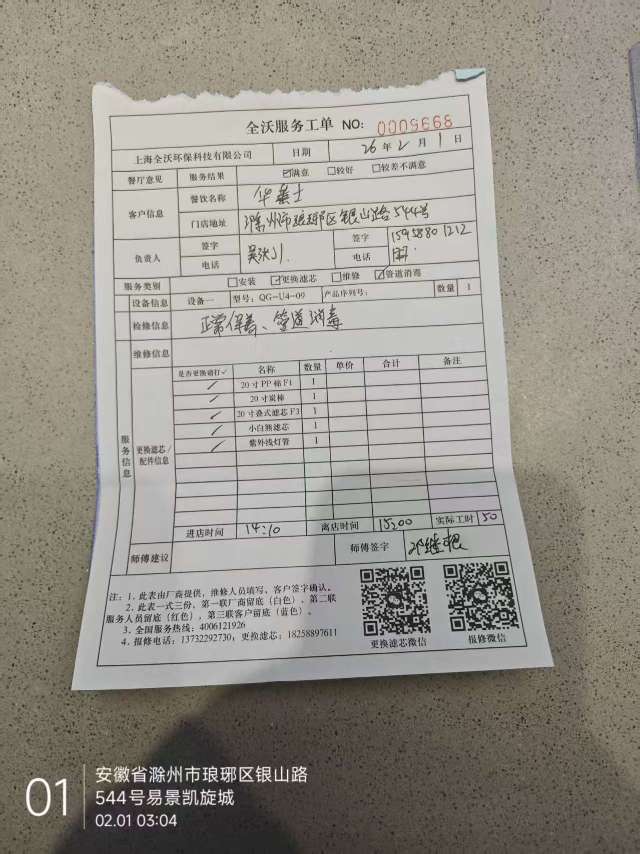 全沃服务工单 NO: 0005668
上海全沃环保科技有限公司 日期 26年2月1日
餐厅意见 服务结果 ☑满意 □较好 □较差不满意
客户信息 餐饮名称 华莱士
门店地址 滁州市琅琊区银山路544号
负责人 签字 签字 15958801212
电话 电话
服务类别 □安装 ☑更换滤芯 □维修 ☑管道消毒
设备信息 设备一 型号: QG-U4-09 产品序列号: 数量 1
检修信息 正常保养、管道消毒
维修信息
服务信息
更换滤芯/配件信息
是否更换请打✓ 名称 数量 单价 合计 备注
✓ 20寸PP棉F1 1
✓ 20寸炭棒 1
✓ 20寸叠式滤芯F3 1
✓ 小白熊滤芯 1
✓ 紫外线灯管 1
进店时间 14:10 离店时间 15:00 实际工时 50
师傅建议 师傅签字
注: 1. 此表由厂商提供, 维修人员填写、客户签字确认。
2. 此表一式三份、第一联厂商留底(白色)、第二联
服务人员留底(红色), 第三联客户留底(蓝色)。
3. 全国服务热线: 4006121926
4. 报修电话: 13732292730; 更换滤芯: 18258897611
更换滤芯微信 报修微信
01
安徽省滁州市琅琊区银山路
544号易景凯旋城
02.01 03:04